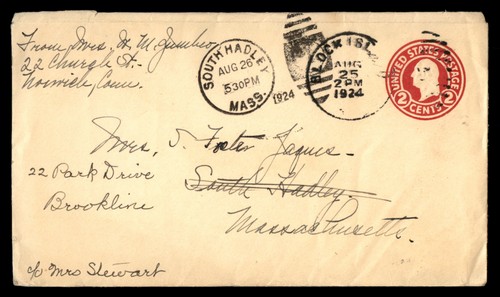 From Mrs. H. M.
22 Church St.
Norwich, Conn.
SOUTH HADLEY
AUG 26
530PM
MASS.
1924
BLOCK ISL
AUG
25
2 PM
1924
UNITED STATES POSTAGE
2 2
CENTS
Mrs. S. Foster Jaques
22 Park Drive
South Hadley
Brookline
Massachusetts.
c/o Mrs Stewart